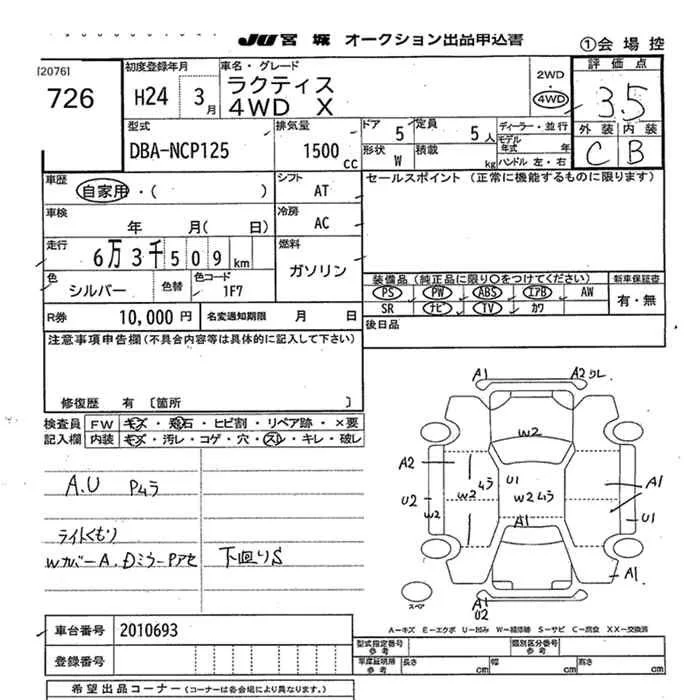 JU 宮城 オークション出品申込書
①会場控
[20761
726
初度登録年月
H24 3月
車名・グレード
ラクティス
4WD X
2WD
・
4WD
評価点
3.5
外装 内装
C B
型式
DBA-NCP125
排気量
1500 cc
ドア 5
定員 5人
形状 W
積載 kg
ディーラー・並行
モデル年式 年
ハンドル 左・右
車歴
自家用・( )
シフト
AT
セールスポイント (正常に機能するものに限ります)
車検
年 月( 日)
冷房
AC
走行
6万3千509km
燃料
ガソリン
色
シルバー
色替
色コード
1F7
装備品 (純正品に限り○をつけてください)
PS PW ABS エアB AW
SR ナビ TV カワ
新車保証書
有・無
R券 10,000円
名変通知期限 月 日
後日品
注意事項申告欄(不具合内容等は具体的に記入して下さい)
修復歴 有 〔箇所 〕
検査員
記入欄
FW キズ・飛石・ヒビ割・リペア跡・×要
内装 キズ・汚レ・コゲ・穴・スレ・キレ・破レ
A.U Pムラ
ライトくもり
Wカバー A.Dミラー Pアセ
下回りS
A1
A2 ワレ
W2
A2
ムラ
U1
U2
W2
W2
W2 ムラ
A1
A1
U1
A1
スペア
A1
U2
A-キズ E-エクボ U-凹み W-補修跡 S-サビ C-腐食 XX-交換済
車台番号 2010693
登録番号
型式指定番号
参考
類別区分番号
参考
車庫証明等
参考
長さ cm
幅 cm
高さ cm
希望出品コーナー (コーナーは各会場により異なります。)